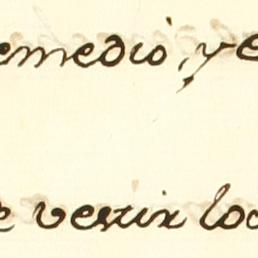 emedio, ye
e vestir loc